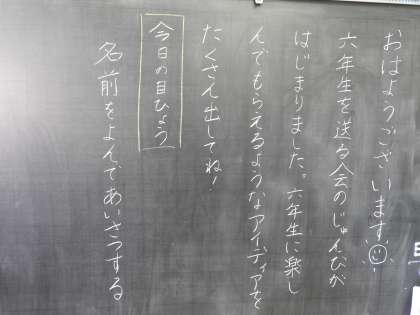 おはようございます
六年生を送る会のじゅんびが
はじまりました。六年生に楽し
んでもらえるようなアイディアを
たくさん出してね!
今日の目ひょう
名前をよんであいさつする